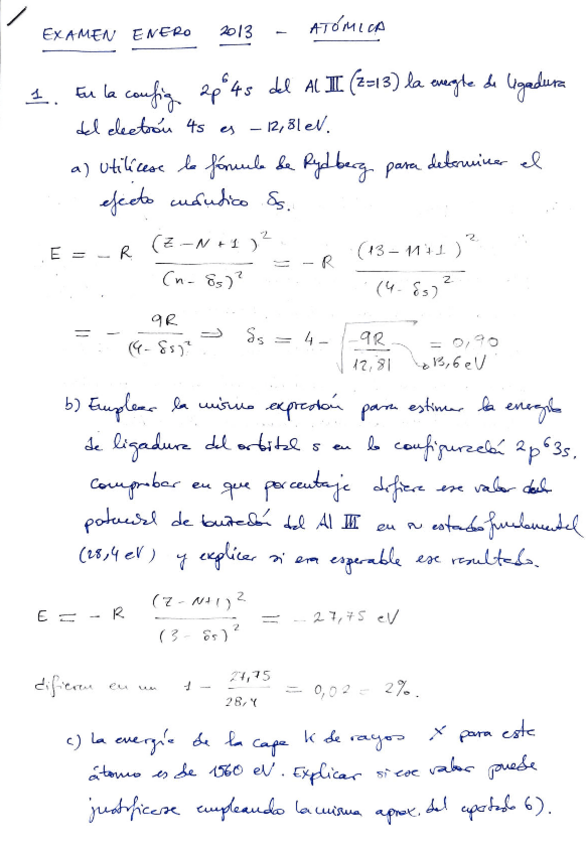 EXAMEN ENERO 2013 - ATÓMICA
1. En la config. 2p⁶4s del Al III (Z=13) la energía de ligadura
del electrón 4s es -12,81 eV.
a) Utilícese la fórmula de Rydberg para determinar el
efecto cuántico δs.
E = - R (Z-N+1)² / (n-δs)² = - R (13-11+1)² / (4-δs)²
= - 9R / (4-δs)² ⟹ δs = 4 - √(-9R / 12,81) = 0,90
→ 13,6 eV
b) Emplear la misma expresión para estimar la energía
de ligadura del orbital s en la configuración 2p⁶3s.
Comprobar en que porcentaje difiere ese valor del
potencial de ionización del Al III en su estado fundamental
(28,4 eV) y explicar si era esperable ese resultado.
E = - R (Z-N+1)² / (3-δs)² = - 27,75 eV
difieren en un 1 - 27,75 / 28,4 = 0,02 = 2%.
c) La energía de la capa K de rayos X para este
átomo es de 1560 eV. Explicar si ese valor puede
justificarse empleando la misma aprox. del apartado b).